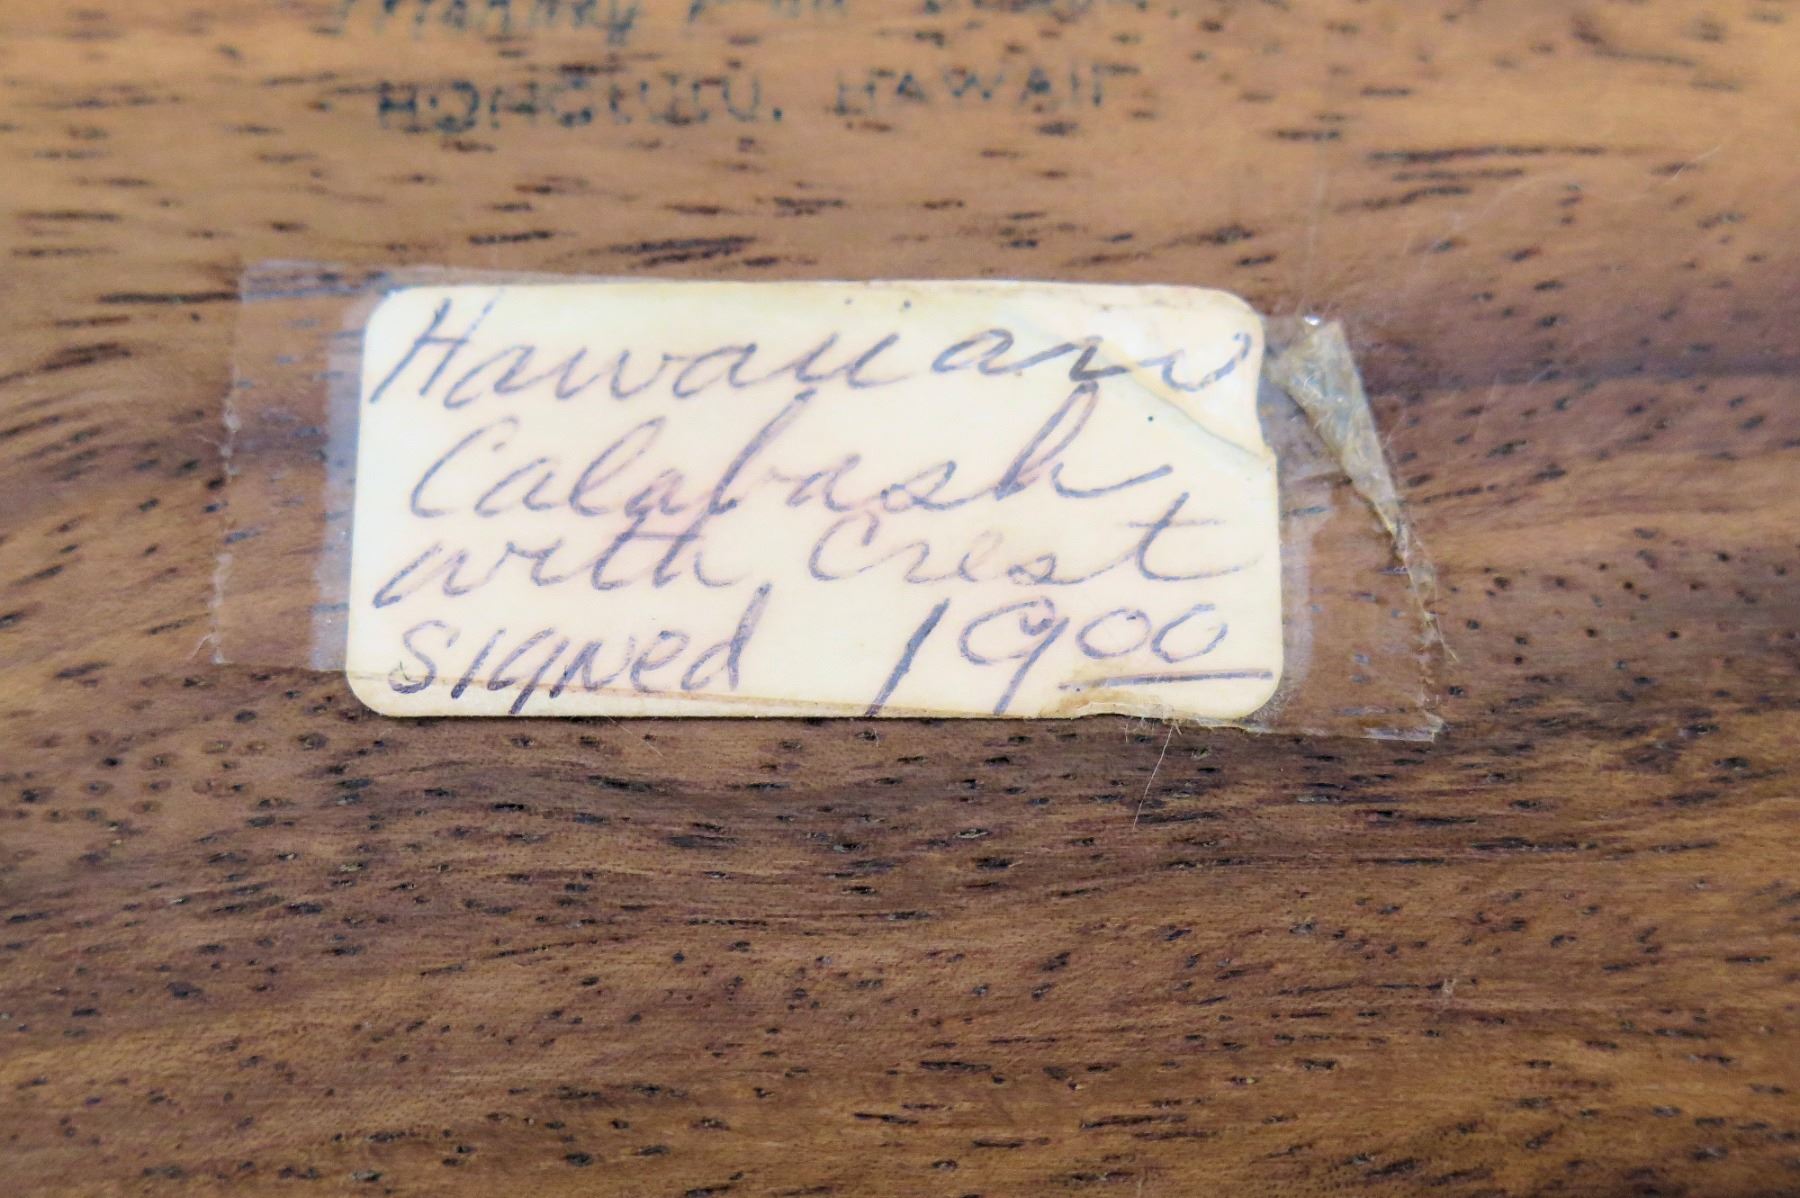 HONOLULU, HAWAII
Hawaiian
Calabash
with Crest
signed 1900